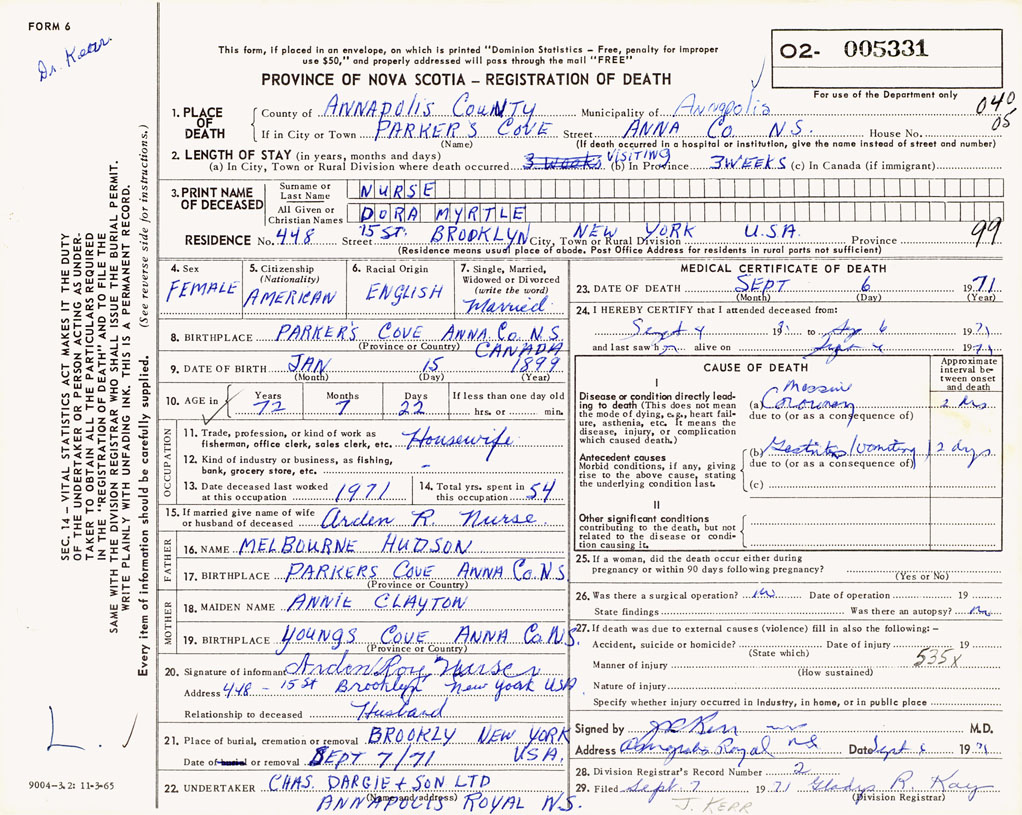 FORM 6
Dr. Kerr.
This form, if placed in an envelope, on which is printed "Dominion Statistics – Free, penalty for improper
use $50," and properly addressed will pass through the mail "FREE"
02- 005331
For use of the Department only
PROVINCE OF NOVA SCOTIA – REGISTRATION OF DEATH
040
05
1. PLACE OF DEATH
County of ANNAPOLIS COUNTY Municipality of Annapolis
If in City or Town PARKER'S COVE Street ANNA Co. N.S. House No.
(Name) (If death occurred in a hospital or institution, give the name instead of street and number)
2. LENGTH OF STAY (in years, months and days)
(a) In City, Town or Rural Division where death occurred 3 weeks VISITING (b) In Province 3 WEEKS (c) In Canada (if immigrant)
3. PRINT NAME OF DECEASED
Surname or Last Name NURSE
All Given or Christian Names DORA MYRTLE
RESIDENCE No. 448 Street 15 ST. BROOKLYN City, Town or Rural Division NEW YORK U.S.A. Province 99
(Residence means usual place of abode. Post Office Address for residents in rural parts not sufficient)
4. Sex FEMALE
5. Citizenship (Nationality) AMERICAN
6. Racial Origin ENGLISH
7. Single, Married, Widowed or Divorced (write the word) Married
8. BIRTHPLACE PARKER'S COVE ANNA. Co. N.S. CANADA
(Province or Country)
9. DATE OF BIRTH JAN 15 1899
(Month) (Day) (Year)
10. AGE in Years 72 Months 7 Days 22 If less than one day old hrs. or min.
OCCUPATION
11. Trade, profession, or kind of work as fisherman, office clerk, sales clerk, etc. Housewife
12. Kind of industry or business, as fishing, bank, grocery store, etc. –
13. Date deceased last worked at this occupation 1971
14. Total yrs. spent in this occupation 54
15. If married give name of wife or husband of deceased Arden R. Nurse
FATHER
16. NAME MELBOURNE HUDSON
17. BIRTHPLACE PARKERS COVE ANNA Co. N.S
(Province or Country)
MOTHER
18. MAIDEN NAME ANNIE CLAYTON
19. BIRTHPLACE YOUNGS COVE ANNA Co N.S.
(Province or Country)
20. Signature of informant Arden Roy Nurse
Address 448 – 15 St Brooklyn New York USA
Relationship to deceased Husband
21. Place of burial, cremation or removal BROOKLY NEW YORK
Date of burial or removal SEPT 7/71 USA.
22. UNDERTAKER CHAS. DARGIE + SON LTD
(Name and address) ANNAPOLIS ROYAL N.S.
MEDICAL CERTIFICATE OF DEATH
23. DATE OF DEATH SEPT 6 1971
(Month) (Day) (Year)
24. I HEREBY CERTIFY that I attended deceased from:
Sept 4 19 71 to 6 1971
and last saw h alive on Sept 1971
CAUSE OF DEATH
Approximate interval between onset and death
I
Disease or condition directly leading to death (This does not mean the mode of dying, e.g., heart failure, asthenia, etc. It means the disease, injury, or complication which caused death.)
(a) Massive Coronary 2 hrs
due to (or as a consequence of)
Antecedent causes
Morbid conditions, if any, giving rise to the above cause, stating the underlying condition last.
(b) Gastritis / vomiting 2 days
due to (or as a consequence of)
(c)
II
Other significant conditions contributing to the death, but not related to the disease or condition causing it.
25. If a woman, did the death occur either during pregnancy or within 90 days following pregnancy?
(Yes or No)
26. Was there a surgical operation? No Date of operation 19
State findings Was there an autopsy? No
27. If death was due to external causes (violence) fill in also the following: –
Accident, suicide or homicide? Date of injury 19
(State which) 535x
Manner of injury
(How sustained)
Nature of injury
Specify whether injury occurred in Industry, in home, or in public place
Signed by M.D.
Address Annapolis Royal NS Date Sept 1971
28. Division Registrar's Record Number 2
29. Filed Sept. 7 1971 Gladys R. Kay
(Division Registrar)
J. KERR
SEC. 14 – VITAL STATISTICS ACT MAKES IT THE DUTY
OF THE UNDERTAKER OR PERSON ACTING AS UNDER-
TAKER TO OBTAIN ALL THE PARTICULARS REQUIRED
IN THE "REGISTRATION OF DEATH" AND TO FILE THE
SAME WITH THE DIVISION REGISTRAR WHO SHALL ISSUE THE BURIAL PERMIT.
WRITE PLAINLY WITH UNFADING INK. THIS IS A PERMANENT RECORD.
Every item of information should be carefully supplied. (See reverse side for instructions.)
L.
9004-3.2: 11-3-65